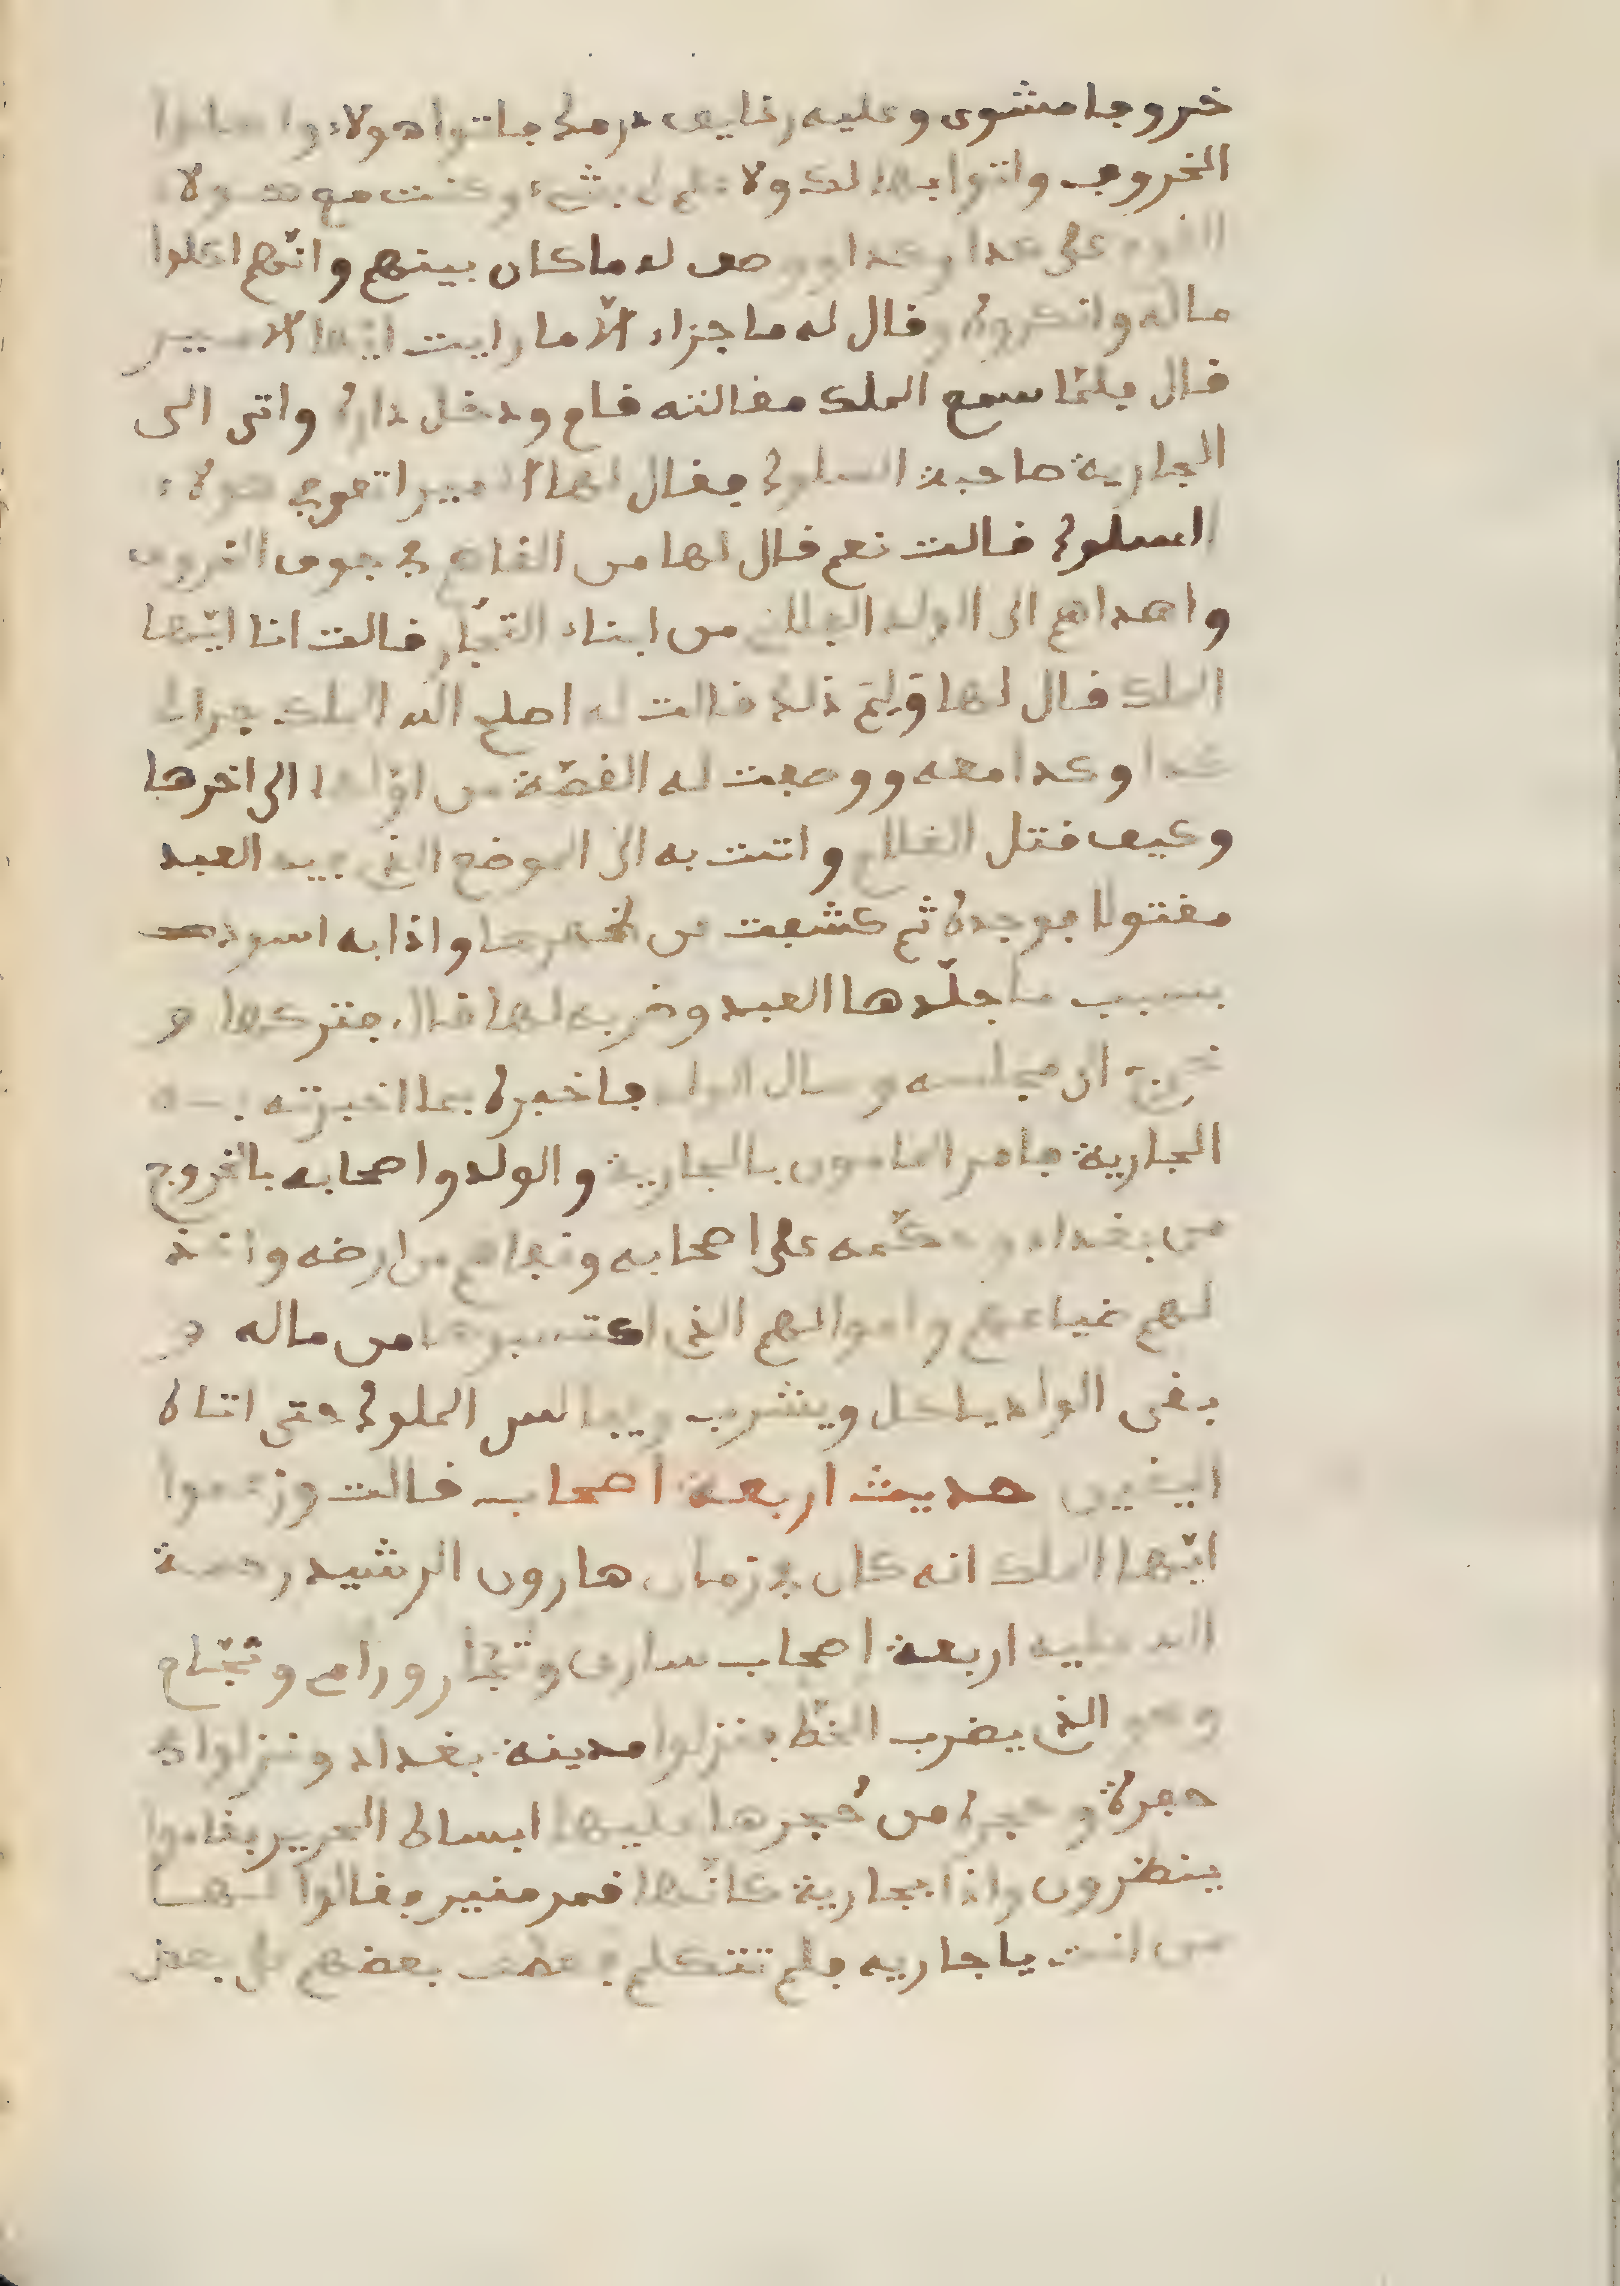 خروفا مشوى وعليه رغايف درمك فاتوا هولاء واكلوا
الخروف واتوا بها لك ولا على بشيء وكنت مع هولاء
القوم على كدا وكدا ووصف له ما كان بينهم وانّهم اكلوا
ماله وانكروه وقال له ما جزاء الّا ما رايت ايّها الامير
قال فلمّا سمع الملك مقالته قام ودخل داره واتى الى
الجارية صاحبة السلوك فقال لها الامير اتعرفي هولاء
السلوك قالت نعم قال لها من القاهم في جوف الخروف
واهداهم الى الولد الفلاني من ابناء التجّار قالت انا ايّها
الملك قال لها ولِمَ ذلك قالت له اصلح الله الملك جرا لي
كدا وكدا معه ووصفت له القصّة من اوّلها الى اخرها
وكيف قتل الغلام واتت به الى الموضع الذي فيه العبد
مقتولا فوجده ثم كشفت عن ظهرها واذا به اسود
بسبب ما جلّدها العبد وضربه لها قال فتركها و
خرج الى مجلسه وسال الولد فاخبره بما اخبرته به
الجارية فامر المامون بالجارية والولد واصحابه بالخروج
من بغداد وحكّمه على اصحابه ونفاهم من ارضه واخذ
لهم ضياعهم واموالهم الذي اكتسبوها من ماله و
بقى الولد ياكل ويشرب ويجالس الملوك حتى اتاه
اليقين حديث اربعة اصحاب قالت وزعموا
ايّها الملك انه كان في زمان هارون الرشيد رحمة
الله عليه اربعة اصحاب سارق ونجّار ورام ونجّام
وهو الذي يضرب الخطّ فنزلوا مدينة بغداد ونزلوا في
حجرة وحجرة من حُجرها عليها ابساط الحرير بقاموا
ينظرون واذا بجارية كانّها قمر منير فقالوا لها
من انت يا جاريه فلم تتكلم فعطف بعضهم على بعض